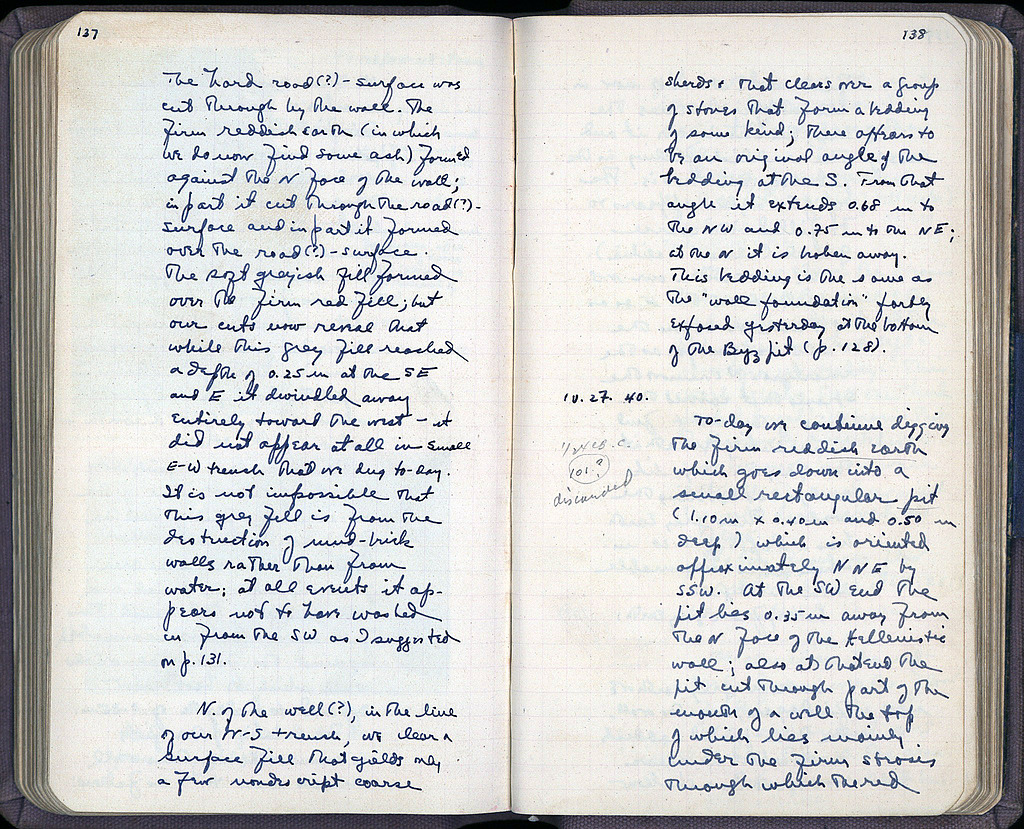 137
The hard road(?)-surface was
cut through by the wall. The
firm reddish earth (in which
we do now find some ash) formed
against the N face of the wall;
in part it cut through the road(?)-
surface and in part it formed
over the road(?)-surface.
The soft greyish fill formed
over the firm red fill; but
our cuts now reveal that
while this grey fill reached
a depth of 0.25 m at the SE
and E it dwindled away
entirely toward the west – it
did not appear at all in small
E-W trench that we dug to-day.
It is not impossible that
this grey fill is from the
destruction of mud-brick
walls rather than from
water; at all events it ap-
pears not to have washed
in from the SW as I suggested
on p. 131.
N. of the well(?), in the line
of our N-S trench, we clear a
surface fill that yields only
a few nondescript coarse
138
sherds & that clears over a group
of stones that form a bedding
of some kind; there appears to
be an original angle of the
bedding at the S. From that
angle it extends 0.68 m to
the NW and 0.75 m to the NE;
at the N it is broken away.
This bedding is the same as
the "wall foundation" partly
exposed yesterday at the bottom
of the Byz pit (p. 128).
10. 27. 40.
To-day we continue digging
the firm reddish earth
which goes down into a
small rectangular pit
(1.10 m x 0.40 m and 0.50 m
deep) which is oriented
approximately NNE by
SSW. At the SW end the
pit lies 0.35 m away from
the N face of the Hellenistic
wall; also at that end the
pit cut through part of the
mouth of a well the top
of which lies mainly
under the firm strosis
through which the red
B.C.
101?
discarded